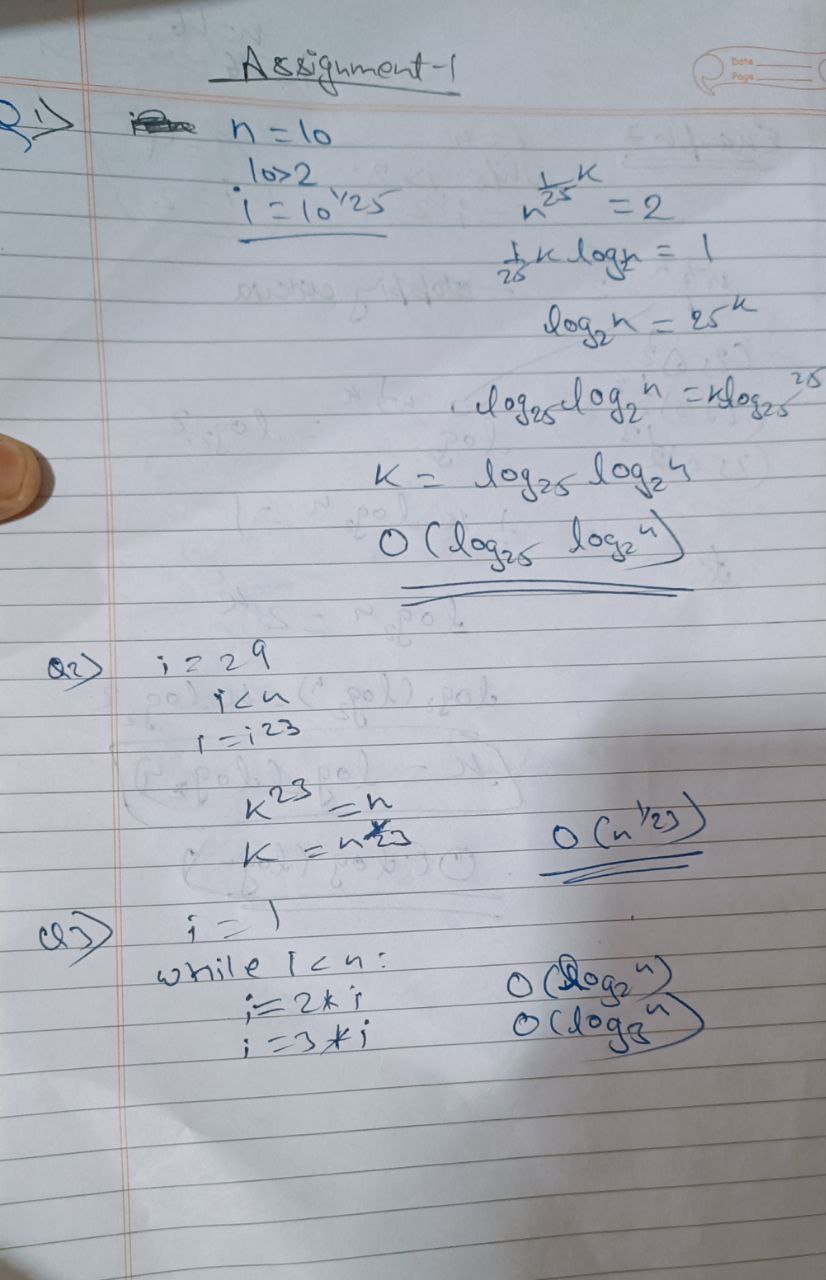 Assignment-1
Date
Page
Q1>
n = 10
10>2
i = 10^1/25
n^1/25^K = 2
1/25^K log2n = 1
log2n = 25^K
log25 log2n = K log25 25
K = log25 log2n
O (log25 log2n)
Q2> i = 29
i<n
i = i23
K^23 = n
K = n^23
O (n^1/23)
Q3> i = 1
while i < n:
i = 2 * i
O (log2n)
i = 3 * i
O (log3n)